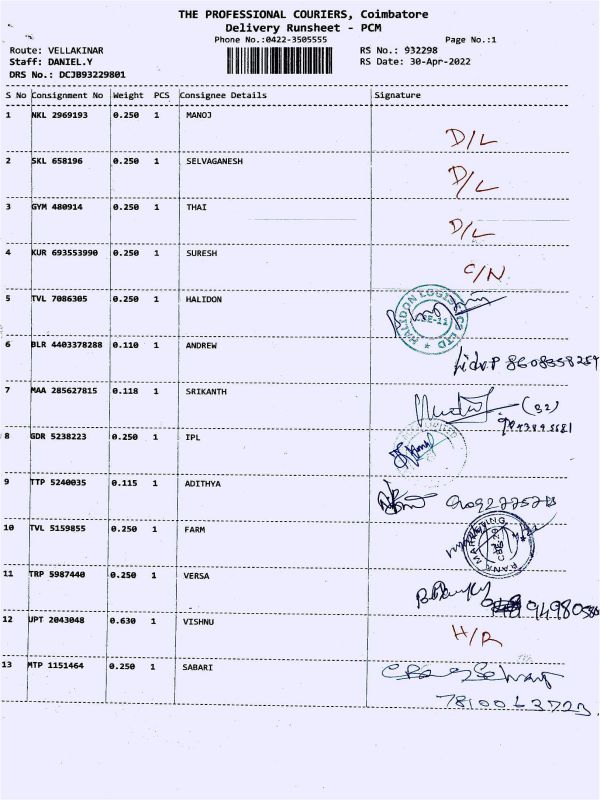 THE PROFESSIONAL COURIERS, Coimbatore
Delivery Runsheet - PCM
Phone No.:0422-3505555 Page No.:1
Route: VELLAKINAR RS No.: 932298
Staff: DANIEL.Y RS Date: 30-Apr-2022
DRS No.: DCJB93229801
S No Consignment No Weight PCS Consignee Details Signature
1 NKL 2969193 0.250 1 MANOJ
D/L
2 SKL 658196 0.250 1 SELVAGANESH
D/L
3 GYM 480914 0.250 1 THAI
D/L
4 KUR 693553990 0.250 1 SURESH
C/N
5 TVL 7086305 0.250 1 HALIDON
HALIDON LOGISTICS LTD
6 BLR 4403378288 0.110 1 ANDREW
7 MAA 285627815 0.118 1 SRIKANTH
(S2)
8 GDR 5238223 0.250 1 IPL
9 TTP 5240035 0.115 1 ADITHYA
10 TVL 5159855 0.250 1 FARM
11 TRP 5987440 0.250 1 VERSA
12 UPT 2043048 0.630 1 VISHNU
H/R
13 MTP 1151464 0.250 1 SABARI